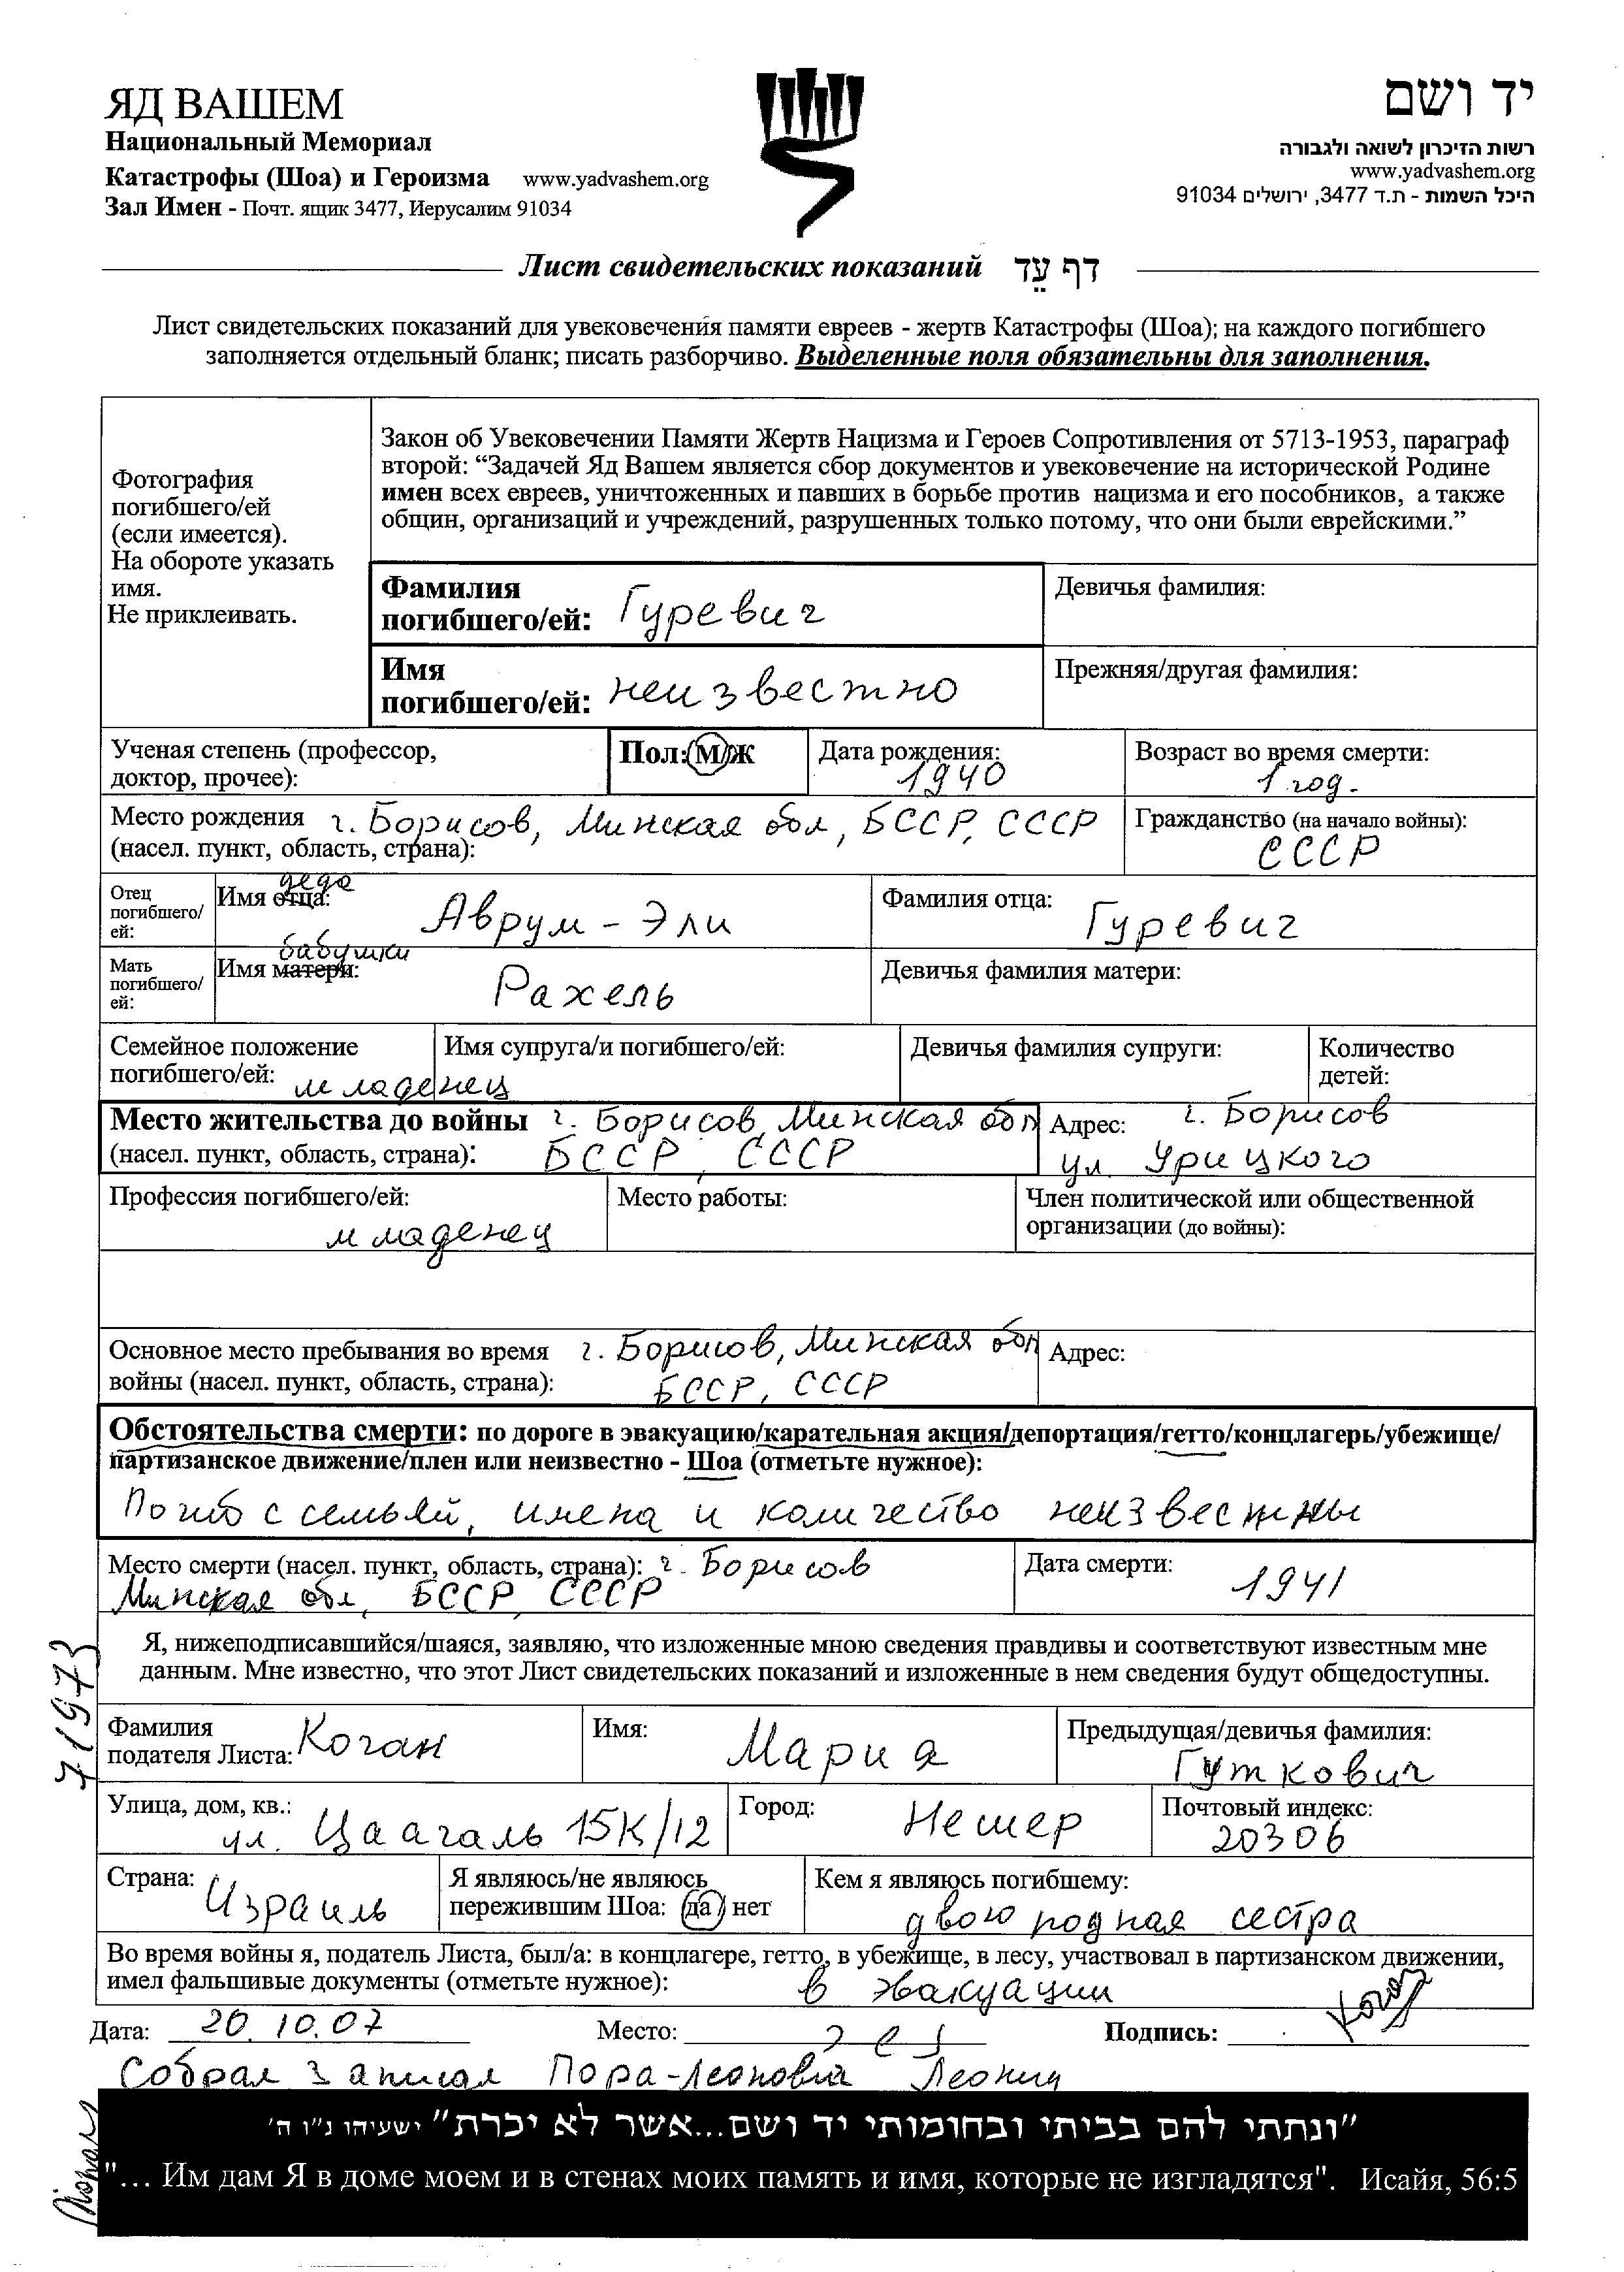 ЯД ВАШЕМ
Национальный Мемориал
Катастрофы (Шоа) и Героизма www.yadvashem.org
Зал Имен - Почт. ящик 3477, Иерусалим 91034
יד ושם
רשות הזיכרון לשואה ולגבורה
www.yadvashem.org
היכל השמות - ת.ד 3477, ירושלים 91034
Лист свидетельских показаний דף עֵד
Лист свидетельских показаний для увековечения памяти евреев - жертв Катастрофы (Шоа); на каждого погибшего
заполняется отдельный бланк; писать разборчиво. Выделенные поля обязательны для заполнения.
Фотография
погибшего/ей
(если имеется).
На обороте указать
имя.
Не приклеивать.
Закон об Увековечении Памяти Жертв Нацизма и Героев Сопротивления от 5713-1953, параграф
второй: “Задачей Яд Вашем является сбор документов и увековечение на исторической Родине
имен всех евреев, уничтоженных и павших в борьбе против нацизма и его пособников, а также
общин, организаций и учреждений, разрушенных только потому, что они были еврейскими.”
Фамилия
погибшего/ей: Гуревич
Девичья фамилия:
Имя
погибшего/ей: неизвестно
Прежняя/другая фамилия:
Ученая степень (профессор,
доктор, прочее):
Пол: М/Ж
Дата рождения:
1940
Возраст во время смерти:
1 год.
Место рождения г. Борисов, Минская обл, БССР, СССР
(насел. пункт, область, страна):
Гражданство (на начало войны):
СССР
Отец
погибшего/
ей:
деда
Имя отца:
Аврум-Эли
Фамилия отца:
Гуревич
Мать
погибшего/
ей:
бабушки
Имя матери:
Рахель
Девичья фамилия матери:
Семейное положение
погибшего/ей: младенец
Имя супруга/и погибшего/ей:
Девичья фамилия супруги:
Количество
детей:
Место жительства до войны г. Борисов, Минская обл
(насел. пункт, область, страна): БССР, СССР
Адрес: г. Борисов
ул. Урицкого
Профессия погибшего/ей:
младенец
Место работы:
Член политической или общественной
организации (до войны):
Основное место пребывания во время г. Борисов, Минская обл
войны (насел. пункт, область, страна): БССР, СССР
Адрес:
Обстоятельства смерти: по дороге в эвакуацию/карательная акция/депортация/гетто/концлагерь/убежище/
партизанское движение/плен или неизвестно - Шоа (отметьте нужное):
Погиб с семьей, имена и количество неизвестны
Место смерти (насел. пункт, область, страна): г. Борисов
Минская обл, БССР, СССР
Дата смерти:
1941
Я, нижеподписавшийся/шаяся, заявляю, что изложенные мною сведения правдивы и соответствуют известным мне
данным. Мне известно, что этот Лист свидетельских показаний и изложенные в нем сведения будут общедоступны.
71973
Фамилия
подателя Листа: Коган
Имя:
Мария
Предыдущая/девичья фамилия:
Гуткович
Улица, дом, кв.:
ул. Цаагаль 15К/12
Город:
Нешер
Почтовый индекс:
20306
Страна:
Израиль
Я являюсь/не являюсь
пережившим Шоа: да / нет
Кем я являюсь погибшему:
двоюродная сестра
Во время войны я, податель Листа, был/а: в концлагере, гетто, в убежище, в лесу, участвовал в партизанском движении,
имел фальшивые документы (отметьте нужное): в эвакуации
Дата: 20.10.07
Место:
Подпись:
Собрал записал Пора-Леонович Леонид
"ונתתי להם בביתי ובחומותי יד ושם...אשר לא יכרת" ישעיהו נ"ו ה'
"... Им дам Я в доме моем и в стенах моих память и имя, которые не изгладятся". Исайя, 56:5